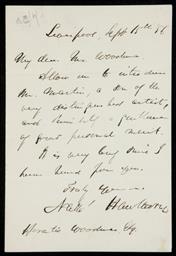 Liverpool, Sept 15th '56
My dear Mr. Woodman
Allow me to introduce
Mr. Martin, a son of the
very distinguished artist,
and himself a gentleman
of great personal merit.
It is very long since I
have heard from you.
Truly Yours
Nath' Hawthorne
Horatio Woodman Esq.